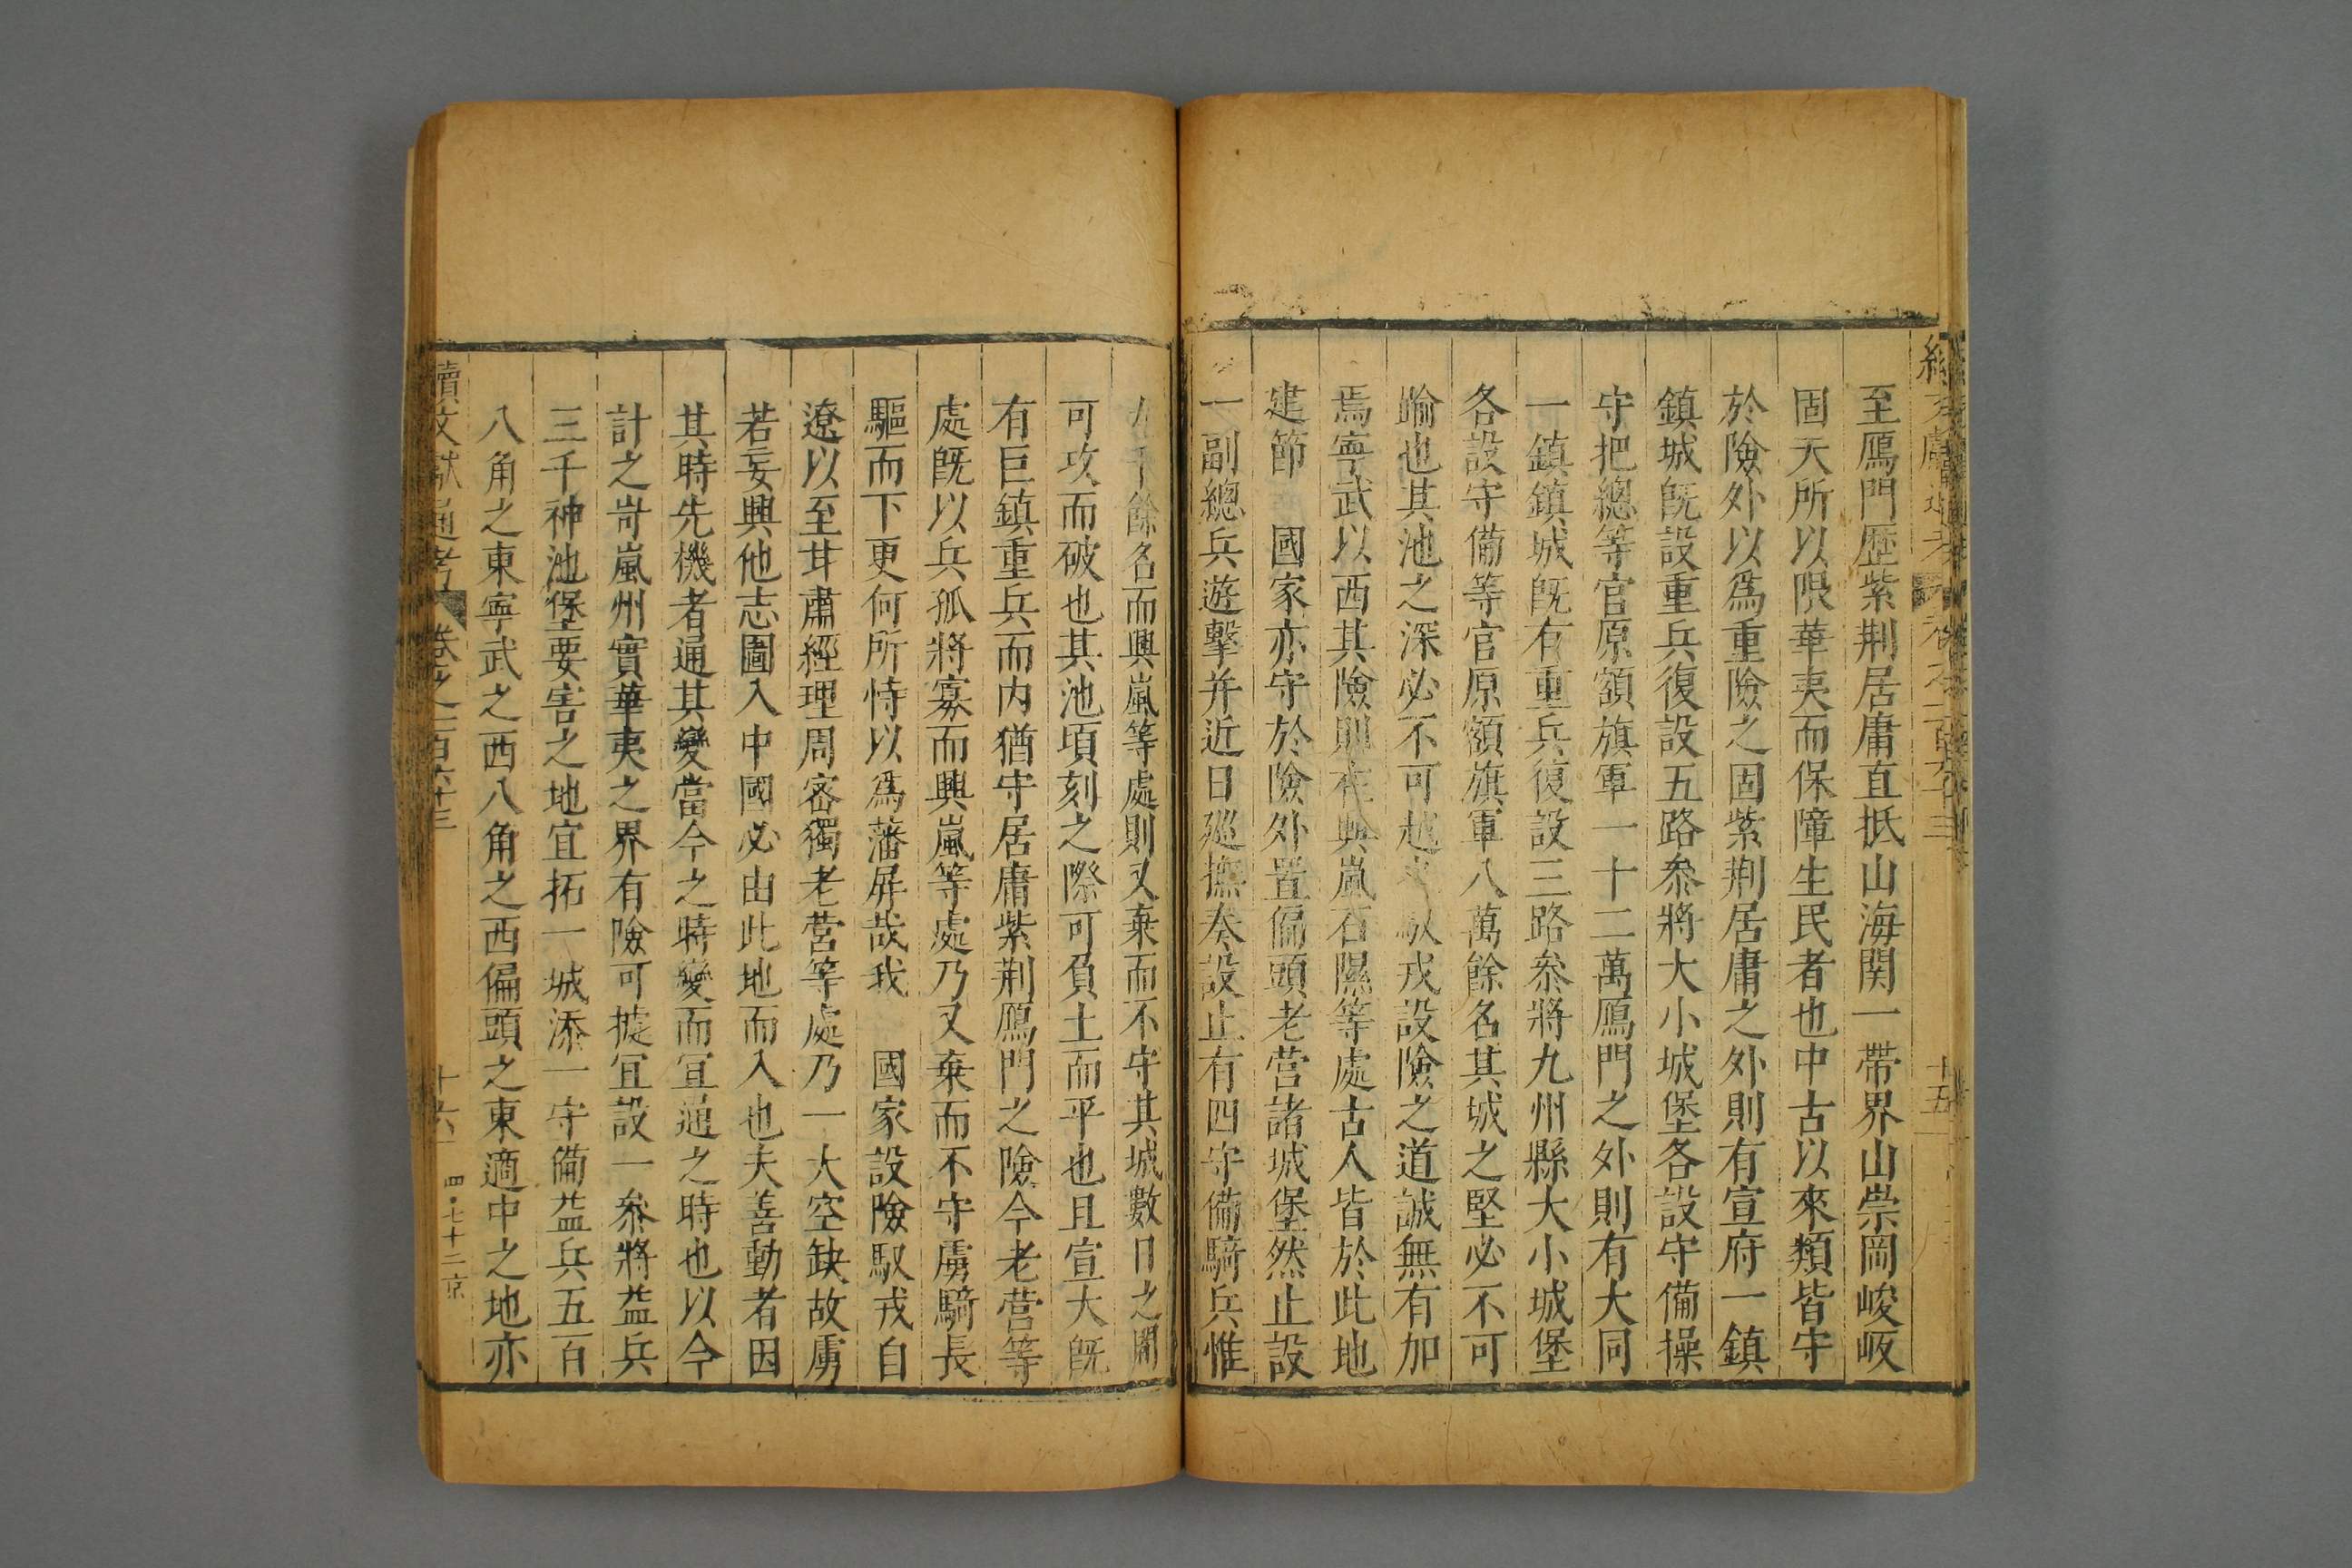 至鴈門歴紫荆居庸直抵山海関一帶界山崇岡峻岅
固天所以限華夷而保障生民者也中古以來類皆守
於險外以爲重險之固紫荆居庸之外則有宣府一鎮
鎮城旣設重兵復設五路叅將大小城堡各設守備操
守把總等官原額旗軍一十二萬鴈門之外則有大同
一鎮鎮城旣有重兵復設三路叅將九州縣大小城堡
各設守備等官原額旗軍八萬餘名其城之堅必不可
踰也其池之深必不可越馭戎設險之道誠無有加
焉寧武以西其險則在興嵐石隰等處古人皆於此地
建節 國家亦守於險外置偏頭老营諸城堡然止設
一副總兵遊擊并近日廵撫奏設止有四守備騎兵惟
千餘名而興嵐等處則又棄而不守其城數日之間
可攻而破也其池頃刻之際可負土而平也且宣大旣
有巨鎮重兵而内猶守居庸紫荆鴈門之險今老营等
處旣以兵孤將寡而興嵐等處乃又棄而不守虜騎長
驅而下更何所恃以爲藩屏哉我 國家設險馭戎自
遼以至甘肅經理周密獨老营等處乃一大空缺故虜
若妄興他志圖入中國必由此地而入也夫善動者因
其時先機者通其變當今之時變而宜通之時也以今
計之岢嵐州實華夷之界有險可據宜設一叅將益兵
三千神池堡要害之地宜拓一城添一守備益兵五百
八角之東寧武之西八角之西偏頭之東適中之地亦
續文獻通考 卷之二百六十三 十六 四·七十二 京